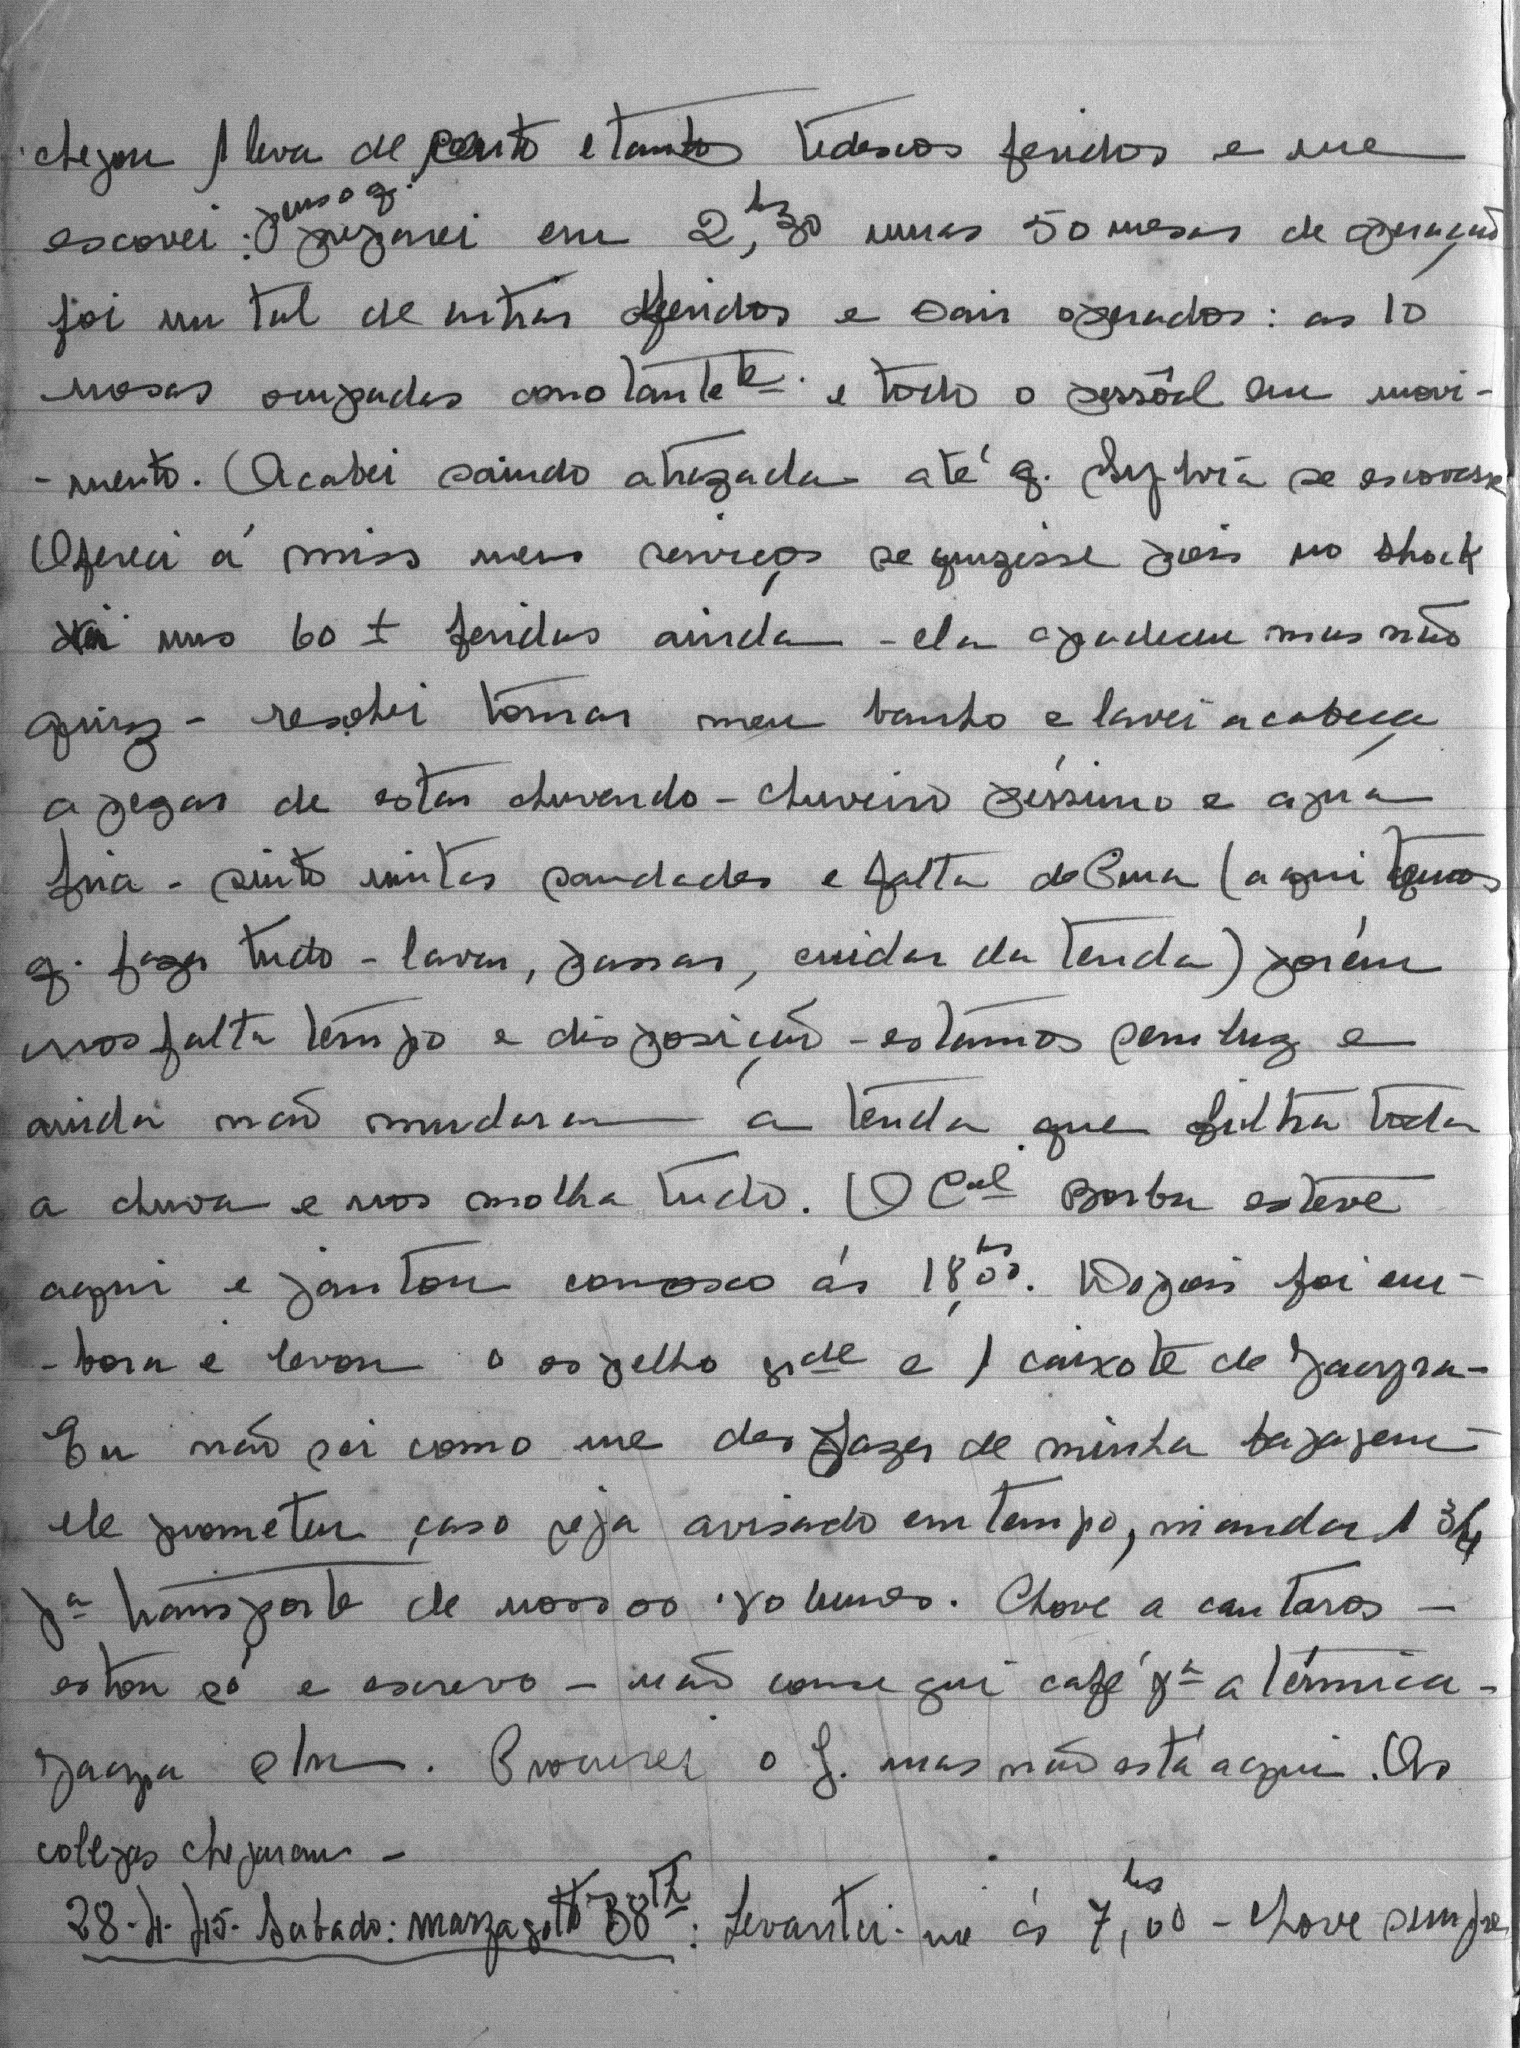 chegou 1 leva de cento e tantos tedescos feridos e me
escovei: penso q. preparei em 2,30 hs umas 50 mesas de operação
foi um tal de entrar feridos e sair operados: as 10
mesas ocupadas constantete. e todo o pessôal em movi-
-mento. Acabei saindo atrazada até q. Sylvia se escovasse
Ofereci á miss meus serviços se quizesse pois no shock
vi uns 60 ± feridos ainda - ela agradeceu mas não
quiz - resolvi tomar meu banho e lavei a cabeça
apezar de estar chuvendo - chuveiro péssimo e agua
fria - sinto muitas saudades e falta de (aqui temos
q. fazer tudo - lavar, passar, cuidar da tenda) porém
nos falta tempo e disposição - estamos sem luz e
ainda não mudaram a tenda que filtra toda
a chuva e nos molha tudo. O Cel Borba esteve
aqui e jantou conosco ás 18,00 hs. Depois foi em-
-bora e levou o espelho gde e 1 caixote de Jacyra -
Eu não sei como me desfazer de minha bagagem -
ele prometeu, caso seja avisado em tempo, mandar 1 3/4
pa transporte de nossos volumes. Chove a cantaros -
estou só e escrevo - não consegui café pa a térmica -
Jacyra . Procurei o J. mas não está aqui. As
colegas chegaram -
28-4-45- Sabado: Marzagotto 38th: Levantei-me ás 7,00 hs - Chove sempre